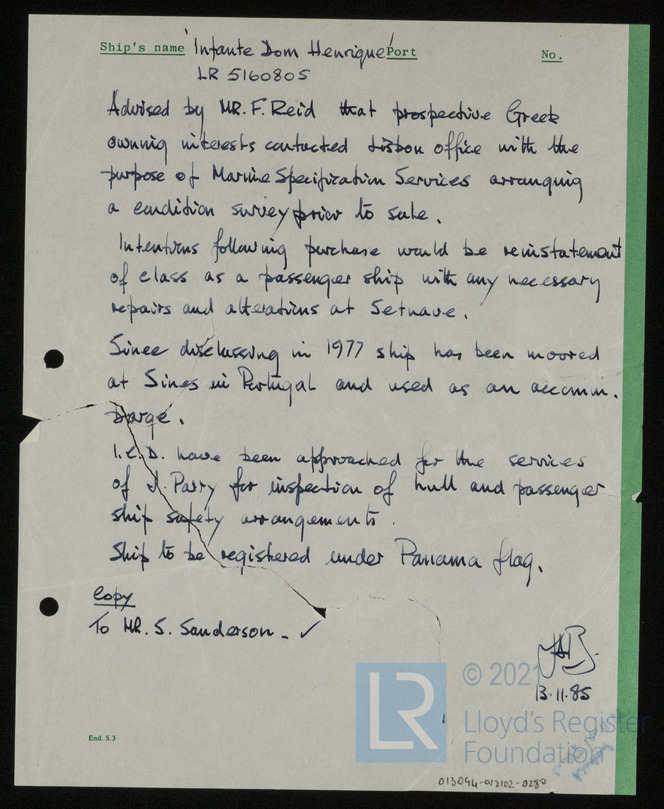 Ship's name 'Infante Dom Henrique' Port No.
LR 5160805
Advised by MR. F. Reid that prospective Greek
owning interests contacted Lisbon office with the
purpose of Marine Specification Services arranging
a condition survey prior to sale.
Intentions following purchase would be reinstatement
of class as a passenger ship with any necessary
repairs and alterations at Setnave.
Since disclassing in 1977 ship has been moored
at Sines in Portugal and used as an accomm.
barge.
I.C.D. have been approached for the services
of J. Parry for inspection of hull and passenger
ship safety arrangements.
Ship to be registered under Panama flag.
Copy
To MR. S. Sanderson. ✓
13.11.85
LR © 2021
Lloyd's Register
Foundation
End. S.3
013094-013102-0280